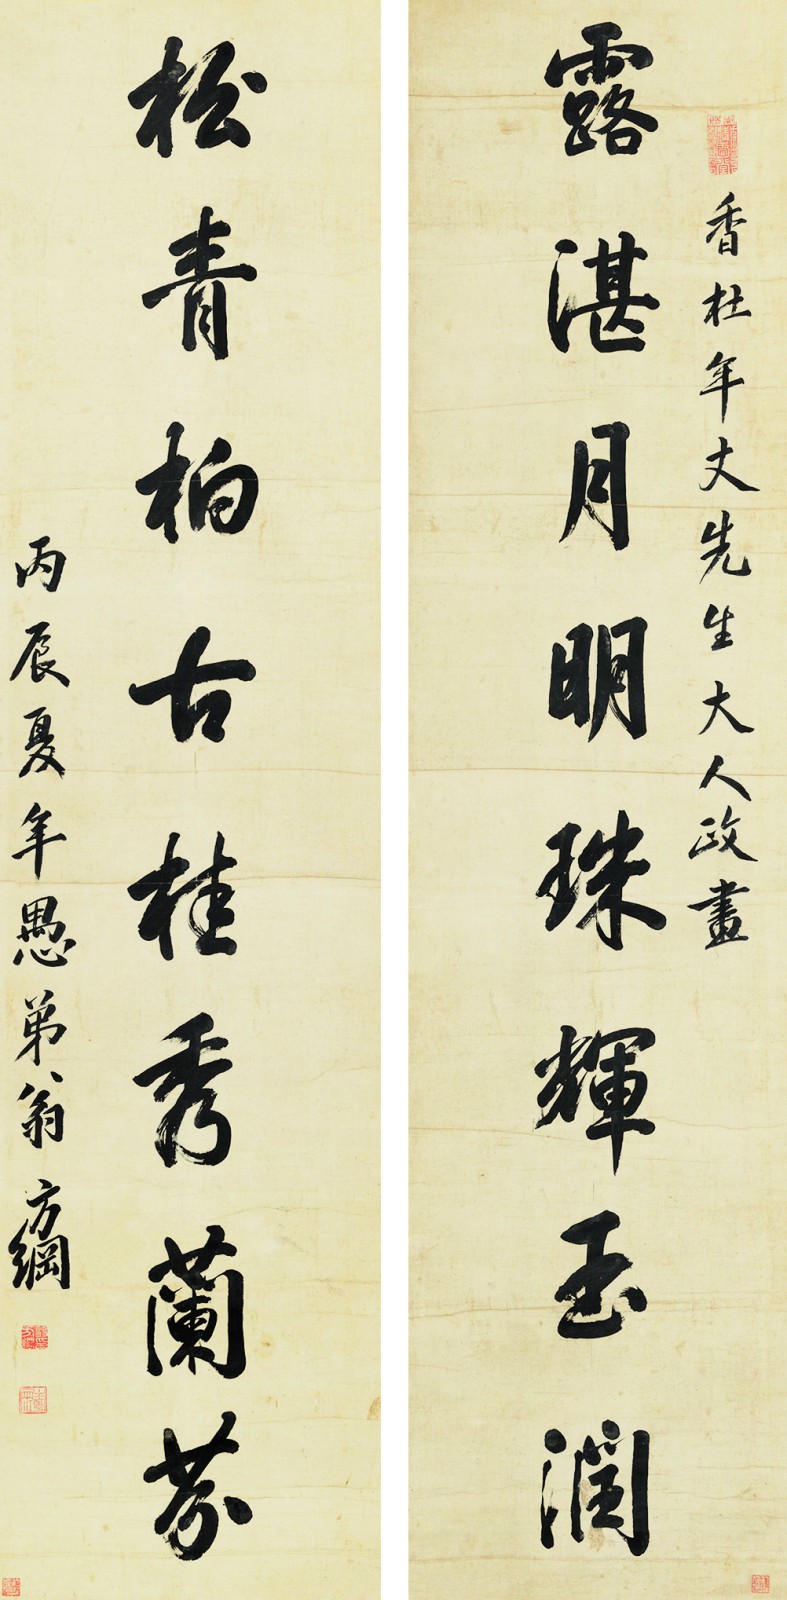 香杜年丈先生大人政畫
露湛月明珠輝玉潤
松青柏古桂秀蘭芬
丙辰夏年愚弟翁方綱